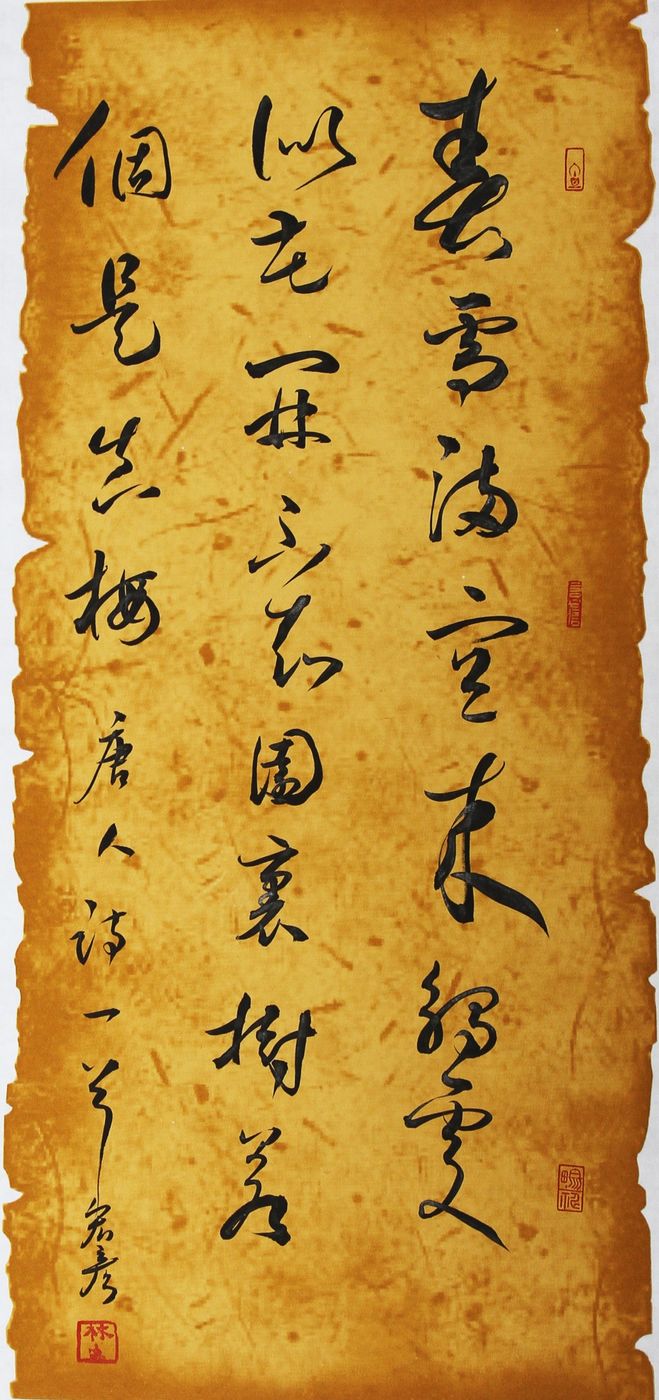 春雪滿空來觸處
似花開不知園裏樹若
個是真梅 唐人詩一首